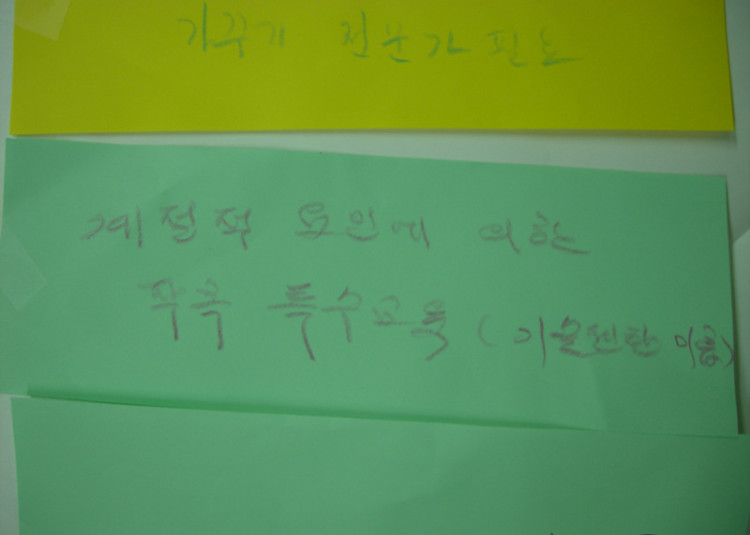 가꾸기 전문가 필요
계절적 요인에 의한
특수교육 (기술센탄 이용)